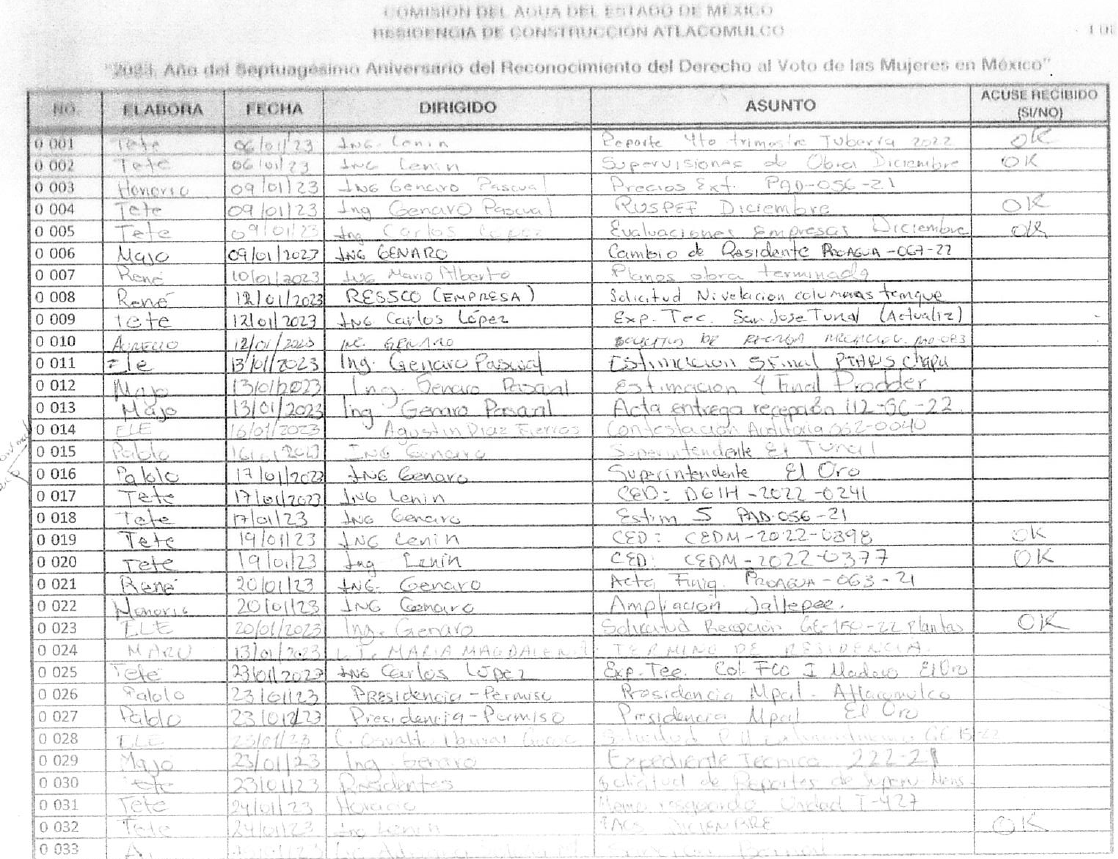 COMISIÓN DEL AGUA DEL ESTADO DE MÉXICO
RESIDENCIA DE CONSTRUCCIÓN ATLACOMULCO
"2023. Año del Septuagésimo Aniversario del Reconocimiento del Derecho al Voto de las Mujeres en México"
NO. ELABORA FECHA DIRIGIDO ASUNTO ACUSE RECIBIDO (SI/NO)
0 001 Tete 06/01/23 Ing. Lenin Reporte 4to trimestre Tubería 2022 OK
0 002 Tete 06/01/23 Ing Lenin Supervisiones de Obra Diciembre OK
0 003 Honorio 09/01/23 Ing Genaro Pascual Precios Ext. PAD-056-21
0 004 Tete 09/01/23 Ing Genaro Pascual RUSPEF Diciembre OK
0 005 Tete 09/01/23 Ing Carlos López Evaluaciones Empresas Diciembre OK
0 006 Majo 09/01/2023 ING GENARO Cambio de Residente PROAGUA-067-22
0 007 René 10/01/2023 Ing Mario Alberto Planos obra terminada
0 008 René 12/01/2023 RESSCO (EMPRESA) Solicitud Nivelacion columnas tanque
0 009 Tete 12/01/2023 ING Carlos López Exp. Tec. San Jose Tunal (Actualiz)
0 010 12/01/2023 GENARO
0 011 Ele 13/01/2023 Ing. Genaro Pascual Estimacion 5 Final PTARS Chapa
0 012 Majo 13/01/2023 Ing. Genaro Pascual Estimacion 4 Final Prodder
0 013 Majo 13/01/2023 Ing. Genaro Pascual Acta entrega recepción 112-GC-22
0 014 ELE 16/01/2023 Agustin Diaz Contestación Auditoria 052-0040
0 015 Pablo 16/01/2023 Ing Genaro Superintendente El Tunal
0 016 Pablo 17/01/2023 ING Genaro Superintendente El Oro
0 017 Tete 17/01/2023 ING Lenin CED: DGIH-2022-0241
0 018 Tete 17/01/23 ING Genaro Estim 5 PAD-056-21
0 019 Tete 19/01/23 ING Lenin CED: CEDM-2022-0398 OK
0 020 Tete 19/01/23 Ing. Lenin CED: CEDM-2022-0377 OK
0 021 René 20/01/23 ING. Genaro Acta Finiq. PROAGUA-063-21
0 022 Honorio 20/01/23 ING Genaro Ampliación Jaltepec.
0 023 ELE 20/01/2023 Ing. Genaro Solicitud Recepción GC-150-22 Plantas OK
0 024 MARU 13/01/2023 MARIA MAGDALENA TERMINO DE RESIDENCIA.
0 025 Tete 23/01/2023 ING Carlos López Exp. Tec. Col. Fco I Madero El Oro
0 026 Pablo 23/01/23 Presidencia-Permiso Presidencia Mpal. Atlacomulco
0 027 Pablo 23/01/23 Presidencia-Permiso Presidencia Mpal El Oro
0 028 ELE 23/01/23 Solicitud
0 029 Majo 23/01/23 Ing. Genaro Expediente Tecnico 222-21
0 030 Tete 23/01/23 Residentes Solicitud de Reportes de Superv Mens
0 031 Tete 24/01/23 Horacio Memo resguardo Unidad T-427
0 032 Tete 24/01/23 Ing Lenin DICIEMBRE OK
0 033